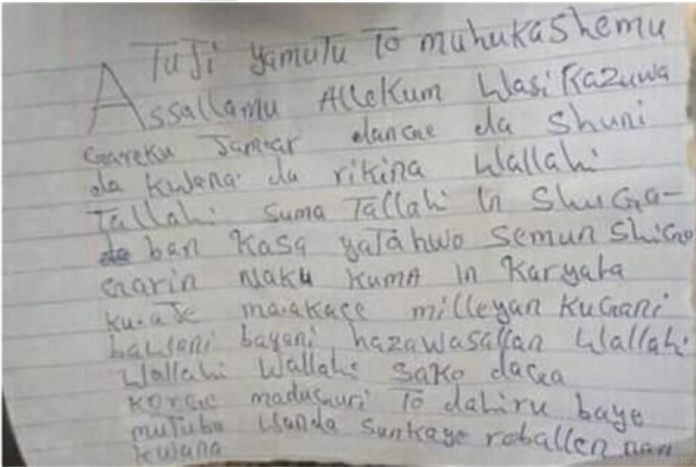 TuJi yamutu To muhukashemu
Assallamu Allekum Wasikazuwa
Gareku Jamaar dangae da Shuni
da Kwana da rikina Wallahi
Tallahi suma Tallahi In ShuGa-
ban Kasa yatahwo semun ShiGo
Garin Naku kuma In Karyata
ku.aje ma.akace milleyan kuGani
bayani hazawasallan Wallahi
Wallahi Wallahi sako daga
Korge To dahiru baye
mutuba wanda sunkaye raballen nan
kwana